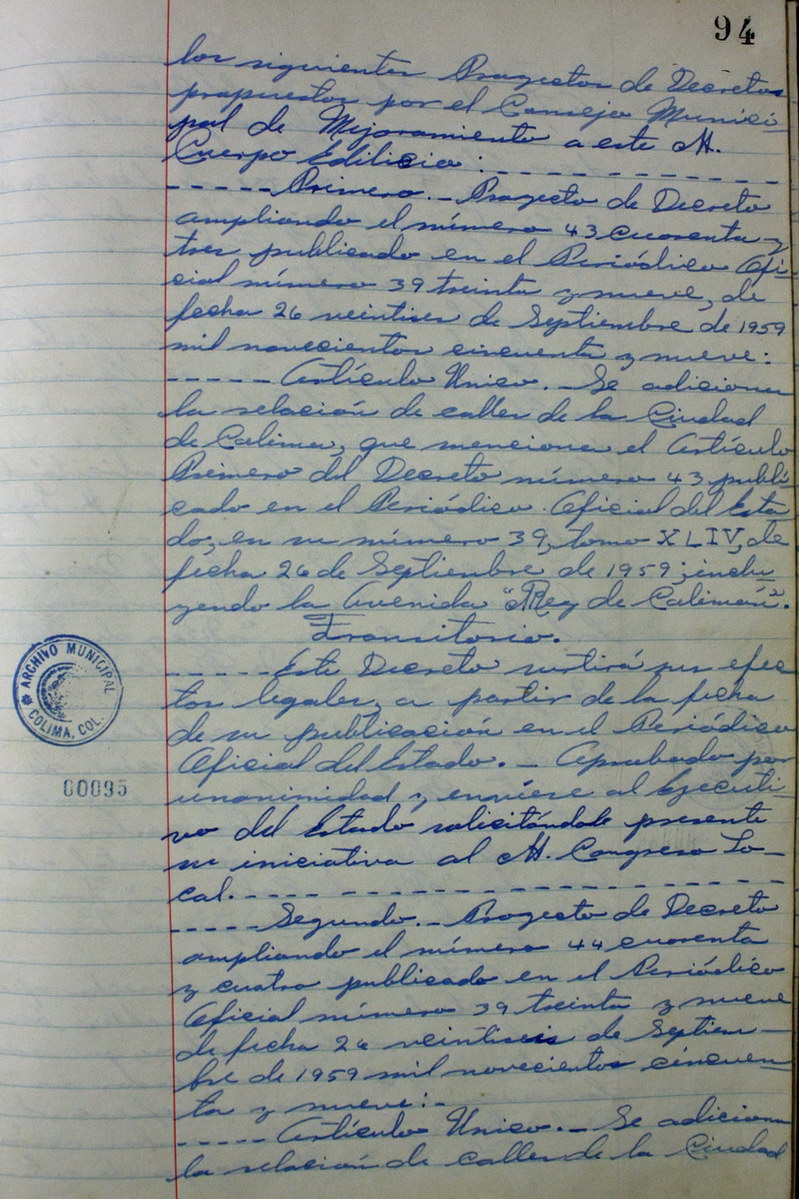 94
los siguientes Proyectos de Decretos
propuestos por el Consejo Munici
pal de Mejoramiento a este H.
Cuerpo Edilicio: - - - - - - - - - -
- - - - - Primero. - Proyecto de Decreto
ampliando el número 43 cuarenta y
tres publicado en el Periódico Ofi-
cial número 39 treinta y nueve, de
fecha 26 veintiseis de Septiembre de 1959
mil novecientos cincuenta y nueve:
- - - - - Artículo Unico. - Se adiciona
la relación de calles de la Ciudad
de Colima, que menciona el Artículo
Primero del Decreto número 43 publi
cado en el Periódico Oficial del Esta
do, en su número 39, tomo XLIV, de
fecha 26 de Septiembre de 1959; inclu
yendo la Avenida "Rey de Colimán".
Transitorio.
- - - - - Este Decreto surtirá sus efec
tos legales, a partir de la fecha
de su publicación en el Periódico
Oficial del Estado. - Aprobado por
unanimidad y envíese al Ejecuti-
vo del Estado solicitándole presente
su iniciativa al H. Congreso Lo-
cal. - - - - - - - - - - - - - - - -
- - - - - Segundo. - Proyecto de Decreto
ampliando el número 44 cuarenta
y cuatro publicado en el Periódico
Oficial número 39 treinta y nueve
de fecha 26 veintiseis de Septiem-
bre de 1959 mil novecientos cincuen-
ta y nueve: -
- - - - - Artículo Unico. - Se adiciona
la relación de calles de la Ciudad
ARCHIVO MUNICIPAL
COLIMA, COL.
00095